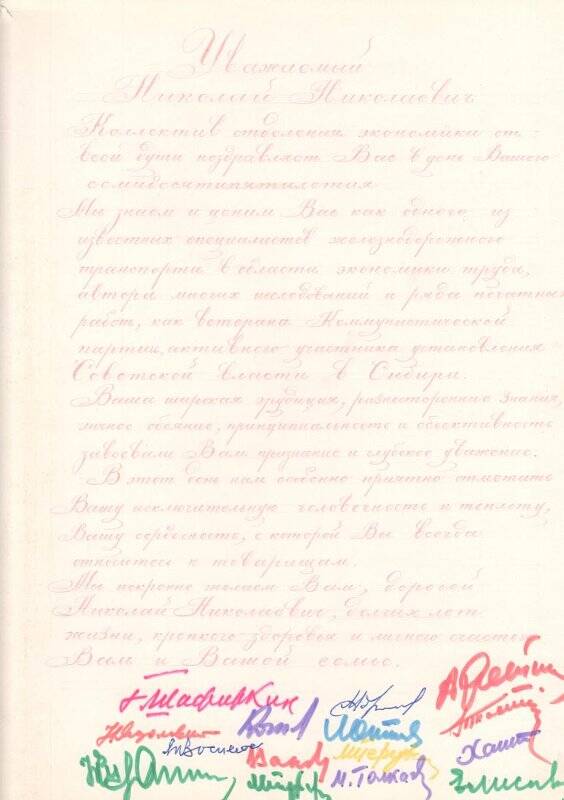 Уважаемый
Николай Николаевич
Коллектив отделения экономики от
всей души поздравляет Вас в день Вашего
семидесятипятилетия
Мы знаем и ценим Вас как одного из
известных специалистов железнодорожного
транспорта в области экономики труда,
автора многих исследований и ряда печатных
работ, как ветерана Коммунистической
партии, активного участника установления
Советской власти в Сибири.
Ваша широкая эрудиция, разносторонние знания,
личное обаяние, принципиальность и объективность
завоевали Вам признание и глубокое уважение.
В этот день нам особенно приятно отметить
Вашу исключительную человечность и теплоту,
Вашу сердечность, с которой Вы всегда
относитесь к товарищам.
Мы искренне желаем Вам, дорогой
Николай Николаевич, долгих лет
жизни, крепкого здоровья и личного счастья
Вам и Вашей семье.